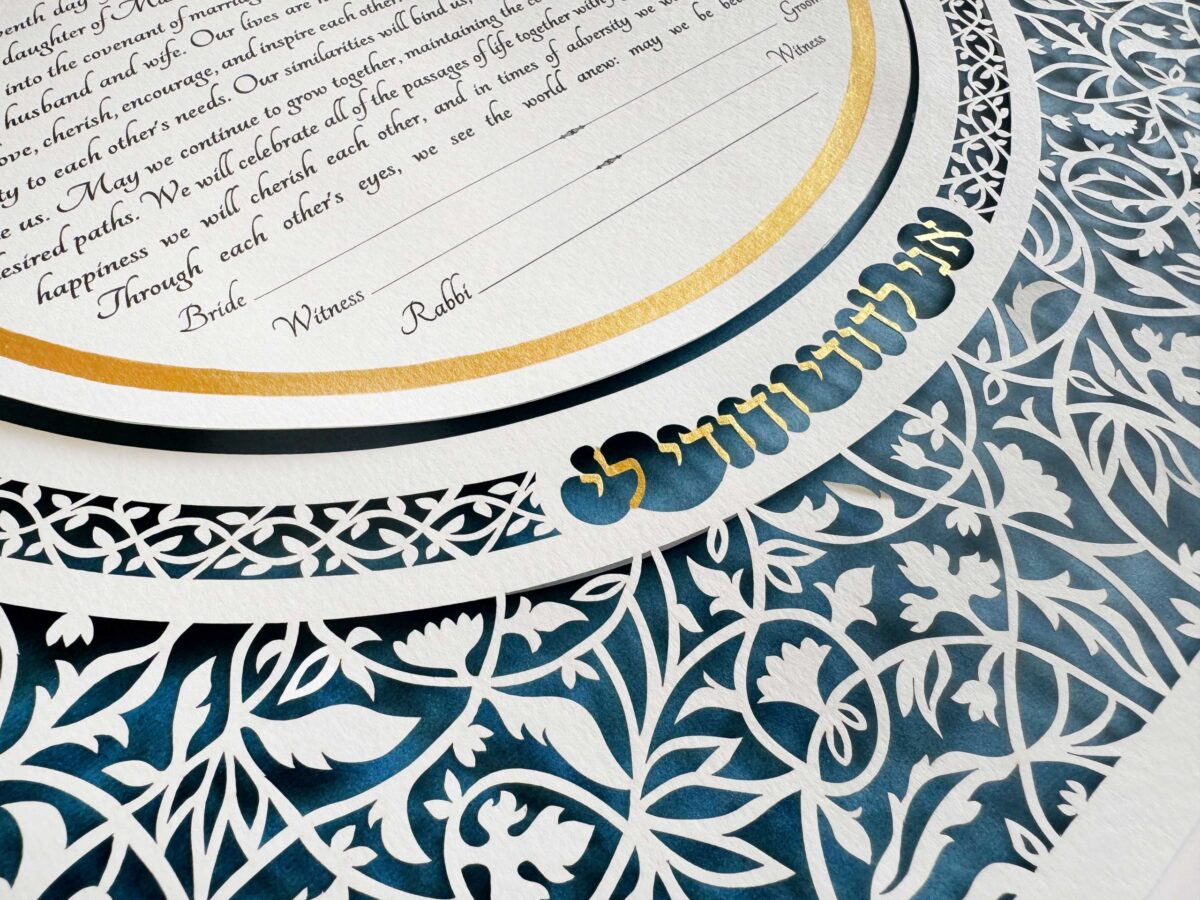 day
daughter of
into the covenant of marriage
husband and wife. Our lives are
cherish, encourage, and inspire each other
to each other's needs. Our similarities will bind us,
us. May we continue to grow together, maintaining the
paths. We will celebrate all of the passages of life together with
happiness we will cherish each other, and in times of adversity we
Through each other's eyes, we see the world anew: may we be
Bride Groom
Witness Witness
Rabbi
אני לדודי ודודי לי